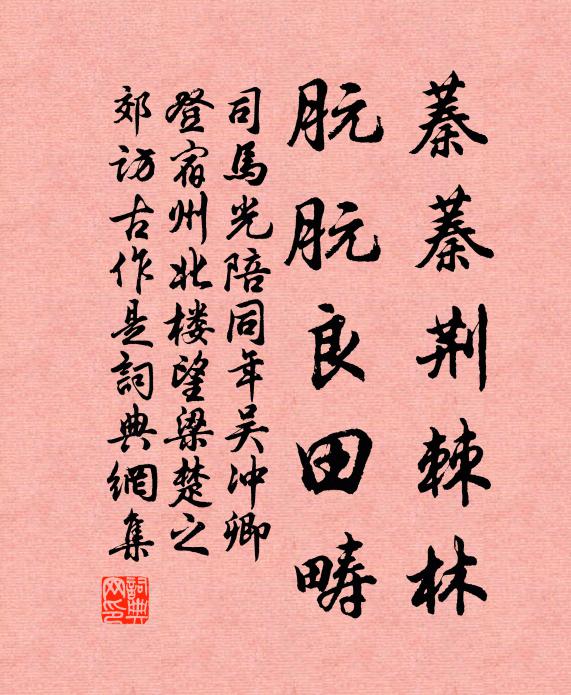 蓁蓁荆棘林
朊朊良田畴
司馬光陪同年吴冲卿
登宿州北楼望梁楚之
郊访古作是詞典網集
詞典网印